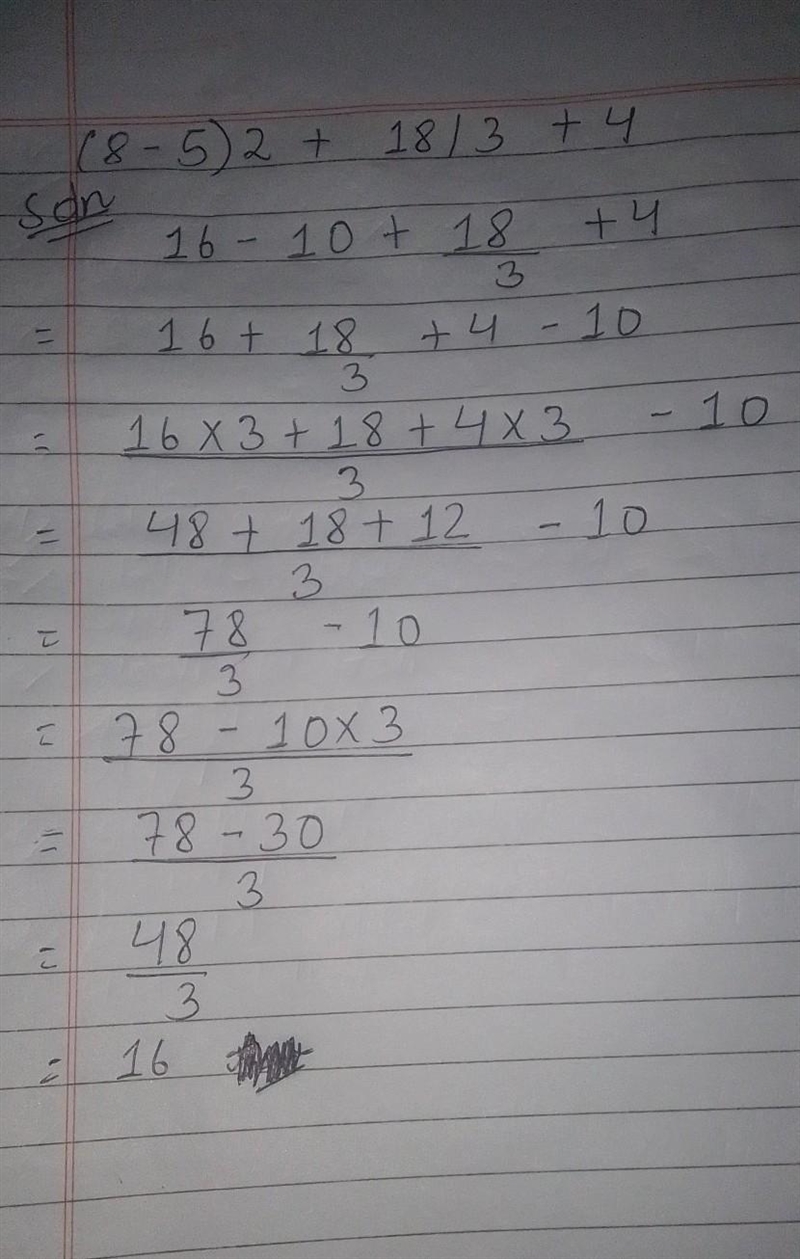 (8-5)2 + 18/3 + 4
Soln
16 - 10 + 18/3 + 4
= 16 + 18/3 + 4 - 10
= 16×3 + 18 + 4×3/3 - 10
= 48 + 18 + 12/3 - 10
= 78/3 - 10
= 78 - 10×3/3
= 78 - 30/3
= 48/3
= 16